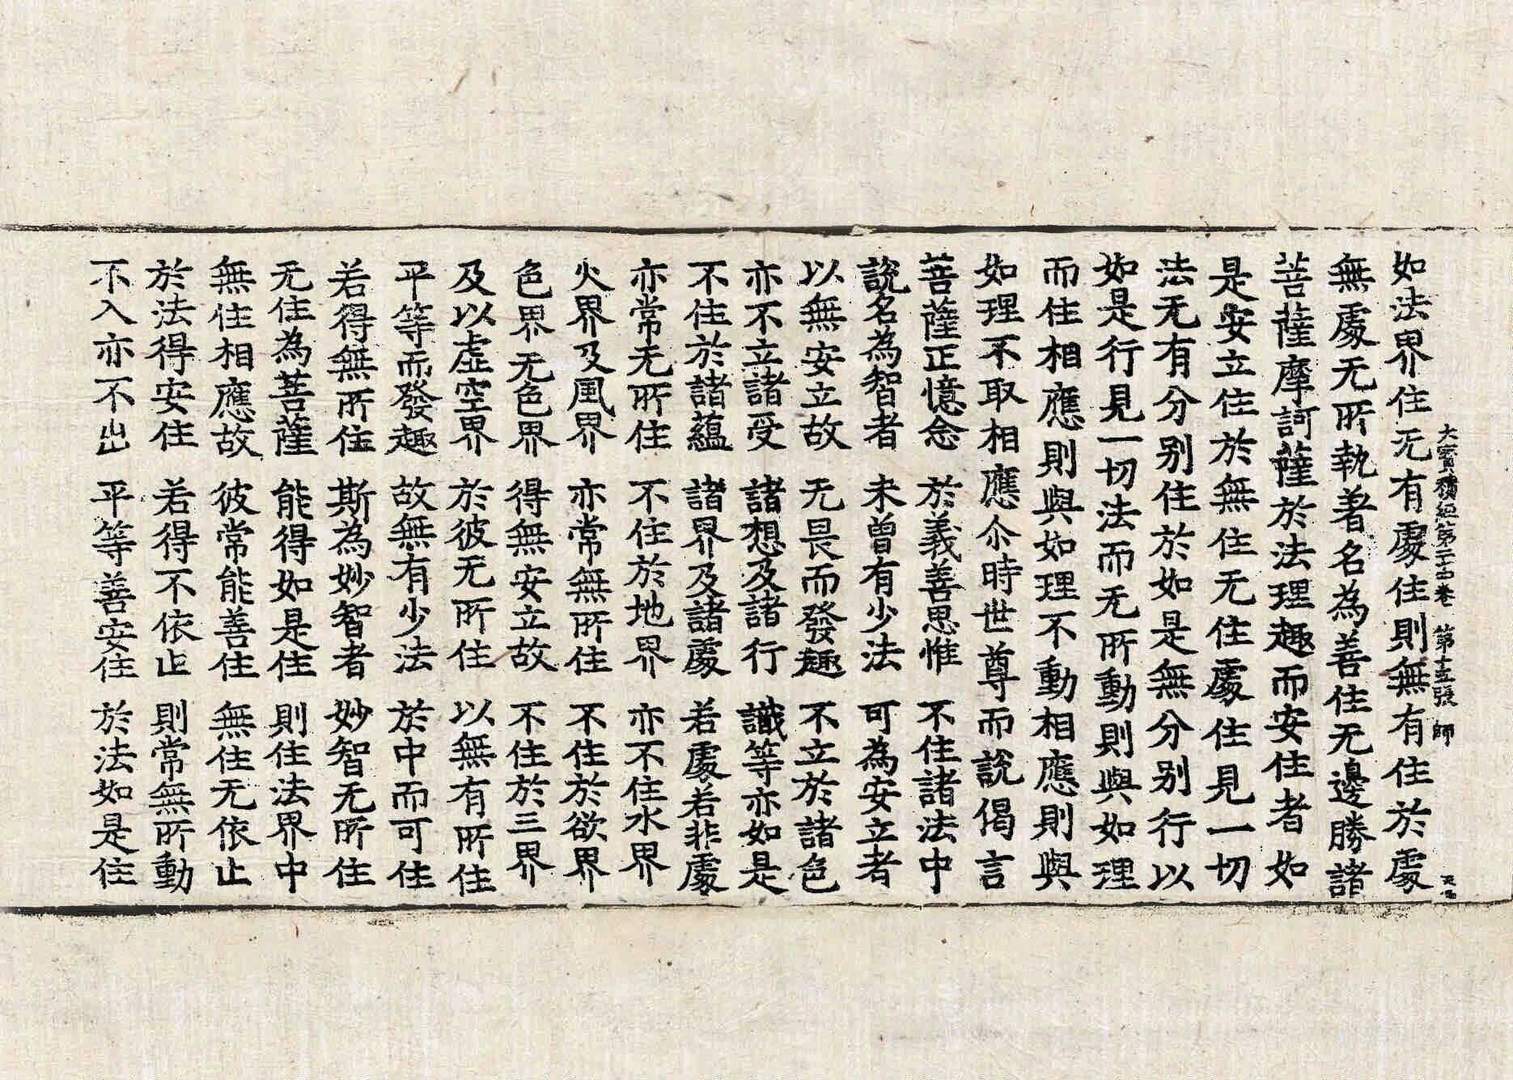 大寶積經第二十四卷 第十五張 師
如法界住无有處住則無有住於處
無處无所執著名為善住无邊勝諸
菩薩摩訶薩於法理趣而安住者如
是安立住於無住无住處住見一切
法无有分別住於如是無分別行以
如是行見一切法而无所動則與如理
而住相應則與如理不動相應則與
如理不取相應尒時世尊而說偈言
菩薩正憶念 於義善思惟 不住諸法中
說名為智者 未曾有少法 可為安立者
以無安立故 无畏而發趣 不立於諸色
亦不立諸受 諸想及諸行 識等亦如是
不住於諸蘊 諸界及諸處 若處若非處
亦常无所住 不住於地界 亦不住水界
火界及風界 亦常無所住 不住於欲界
色界无色界 得無安立故 不住於三界
及以虛空界 於彼无所住 以無有所住
平等而發趣 故無有少法 於中而可住
若得無所住 斯為妙智者 妙智无所住
无住為菩薩 能得如是住 則住法界中
無住相應故 彼常能善住 無住无依止
於法得安住 若得不依止 則常無所動
不入亦不出 平等善安住 於法如是住